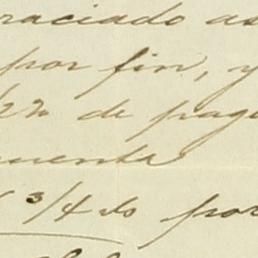 raciado as
por fin, y
de pag
uenta
3/4 do por